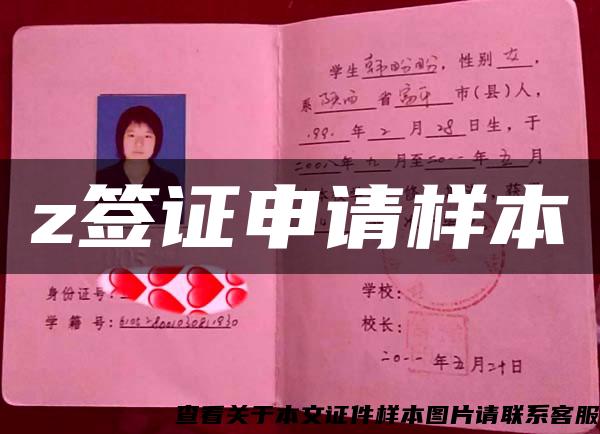 学生韩盼盼，性别女，
系陕西省富平市(县)人，
年2月28日生，于
二〇〇八年九月至二〇一一年五月
z签证申请样本
身份证号：
学籍号：
学校：
校长：
二〇一一年五月二十日
查看关于本文证件样本图片请联系客服